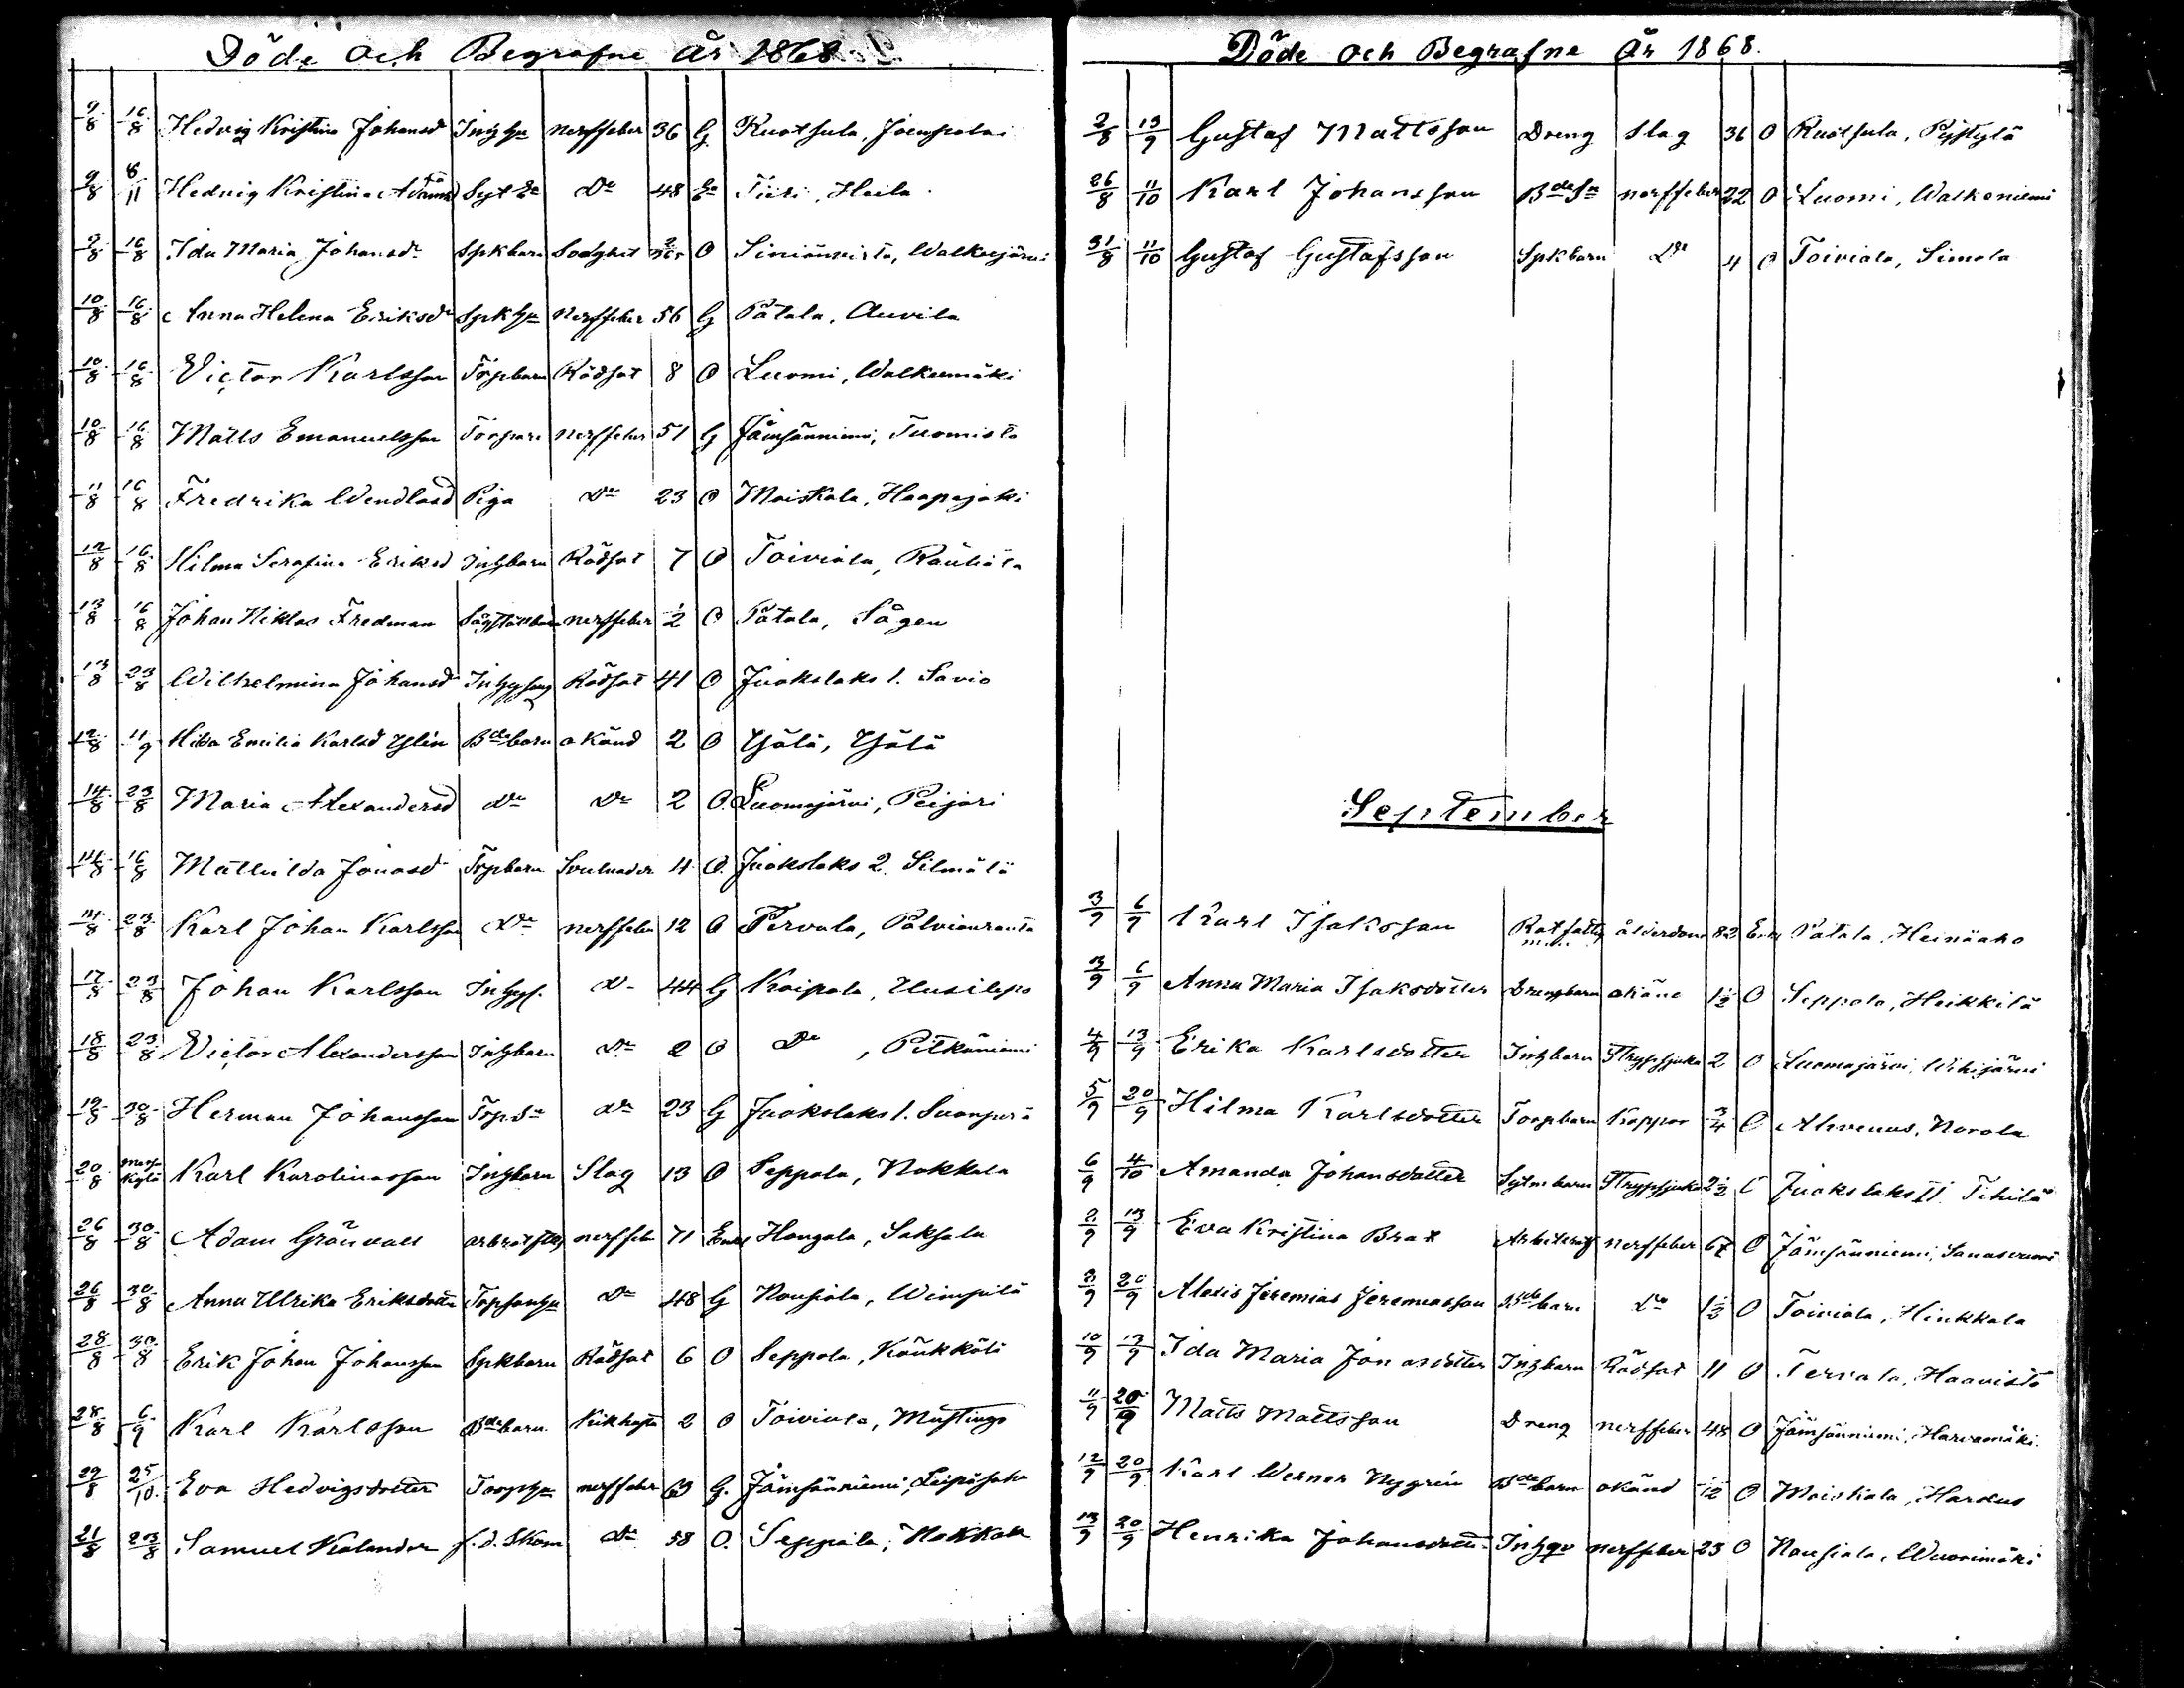 Döde och Begrafne År 1868.
9/8 16/8 Hedvig Kristina Johansd Inhhu nerffeber 36 G Ruotsula, Joenpolvi
9/8 8/11 Hedvig Kristina Adamsd Syt Ea Do 48 Ea Tieri, Heila
9/8 16/8 Ida Maria Johansd. Spkbarn O Siniännistä, Walkeejärvi
10/8 16/8 Anna Helena Eriksdr Spkhu Nerffeber 56 G Pätala, Auvila
10/8 16/8 Victor Karlsson Torpbarn Rödsot 8 O Luomi, Walkeemäki
10/8 16/8 Matts Emanuelsson Torpare nerffeber 51 G Jämsänniemi, Tuomisto
11/8 16/8 Fredrika Wendlasd Piga Do 23 O Moiskala, Haapajoki
12/8 16/8 Hilma Serafina Eriksd Inhbarn Rödsot 7 O Toiviala, Rauhala
13/8 16/8 Johan Niklas Fredman nerffeber 1/2 O Pätala, Sågen
13/8 23/8 Wilhelmina Johansd Rödsot 41 O Juokslaks 1. Savio
12/8 11/9 Hilda Emilia Karlsd Ylén Bdebarn okänd 2 O Yjälä, Yjälä
14/8 23/8 Maria Alexandersd Do Do 2 O. Luomajärvi, Peijari
14/8 16/8 Mathilda Jonasd Torpbarn 4 O. Juokslaks 2. Silmälä
14/8 23/8 Karl Johan Karlsson Do nerffeber 12 O Tervala, Palvianranta
17/8 23/8 Johan Karlsson Inhys. Do 44 G Kaipola, Uusilepo
18/8 23/8 Victor Alexandersson Inhbarn Do 2 O Do, Pitkäniemi
19/8 30/8 Herman Johansson Torp.Sn Do 23 G Juokslaks 1. Suonperä
20/8 Karl Karolinasson Inhbarn Slag 13 O Seppola, Nokkala
26/8 30/8 Adam Grönvall nerffeber 71 Enkl Hongala, Saksala
26/8 30/8 Anna Ulrika Eriksdotter Do 48 G Nousiala, Wimpilä
28/8 30/8 Erik Johan Johansson Spkbarn Rödsot 6 O Seppola, Koukköli
28/8 6/9 Karl Karlsson Bdebarn. Kikhosta 2 O Toiviala, Mustings
29/8 25/10 Eva Hedvigsdotter Torphu nerffeber 63 G. Jämsänniemi, Leipäsaho
21/8 23/8 Samuel Kalander f.d. Skom Do 58 O. Seppola, Nokkala
Döde och Begrafne År 1868.
2/8 13/9 Gustaf Mattsson Dreng Slag 36 O Ruotsula, Pystylä
26/8 11/10 Karl Johansson BdeSn nerffeber 22 O Luomi, Walkoniemi
31/8 11/10 Gustaf Gustafsson Spkbarn Do 4 O Toiviala, Simola
September
3/9 6/9 Karl Isaksson ålderdom 82 Pätala, Heinäaho
3/9 6/9 Anna Maria Isaksdotter Drengbarn okänd 1 1/2 O Seppola, Heikkilä
4/9 13/9 Erika Karlsdotter Inhbarn Strypsjuka 2 O Luomajärvi, Wihijärvi
5/9 20/9 Hilma Karlsdotter Torpbarn Koppor 3/4 O Ahvenus, Norola
6/9 4/10 Amanda Johansdotter Sytn barn Strypsjuka 2 1/2 O Juokslaks II. Tihilä
8/9 13/9 Eva Kristina Brax nerffeber 67 O Jämsänniemi,
8/9 20/9 Alexis Jeremias Jeremiasson Bdebarn Do 1 1/2 O Toiviala, Hinkkala
10/9 13/9 Ida Maria Jonasdotter Inhbarn Rödsot 11 O Tervala, Haavisto
11/9 20/9 Matts Mattsson Dreng nerffeber 48 O Jämsänniemi, Harvamäki.
12/9 20/9 Karl Werner Nygrén Bdebarn okänd 1/12 O Moiskala, Harxus
13/9 20/9 Henrika Johansdotter Inhqv nerffeber 23 O Nousiala, Wuorimäki